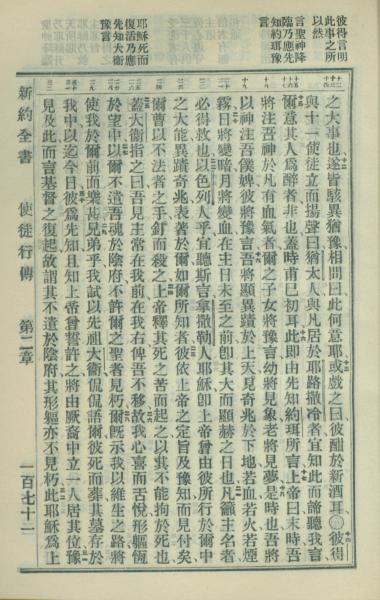 彼得言明
此事之所
以然
言聖神降
臨乃應先
知約珥豫
言
耶穌死而
復活乃應
先知大衛
豫言
之大事也遂皆駭異猶豫相問曰此何意耶或戲之曰彼酣於新酒耳○彼得
與十一使徒立而揚聲曰猶太人與凡居於耶路撒冷者宜知此而諦聽我言
爾意其人爲醉者非也蓋時甫巳初耳此卽由先知約珥所言上帝曰末時吾
將注吾神於凡有血氣者爾之子女將豫言幼將見象老將見夢是時也吾將
以神注吾僕婢彼將豫言吾將顯異蹟於上天見奇兆於下地若血若火若煙
霧日將變暗月將變血在主日未至之前卽其大而顯赫之日也凡籲主名者
必得救也以色列人乎宜聽斯言拿撒勒人耶穌卽上帝曾由彼所行於爾中
之大能異蹟奇兆表著於爾如爾所知者彼依上帝之定旨及豫知而見付矣
爾曹以不法者之手釘而殺之上帝釋其死之苦而起之以其不能拘於死也
蓋大衛指之曰吾見主常在我前在我右俾吾不移故我心喜而舌悅形軀恆
於望中以爾不遺吾魂於陰府不許爾之聖者見朽爾旣示我以維生之路將
使我於爾前而樂甚兄弟乎我試以先祖大衛侃侃語爾彼死而葬其墓存於
我中以迄今日彼爲先知且知上帝曾誓許之將由厥裔中立一人居其位豫
見及此而言基督之復起故謂其不遺於陰府其形軀亦不見朽此耶穌爲上
新約全書 使徒行傳 第二章 一百七十二